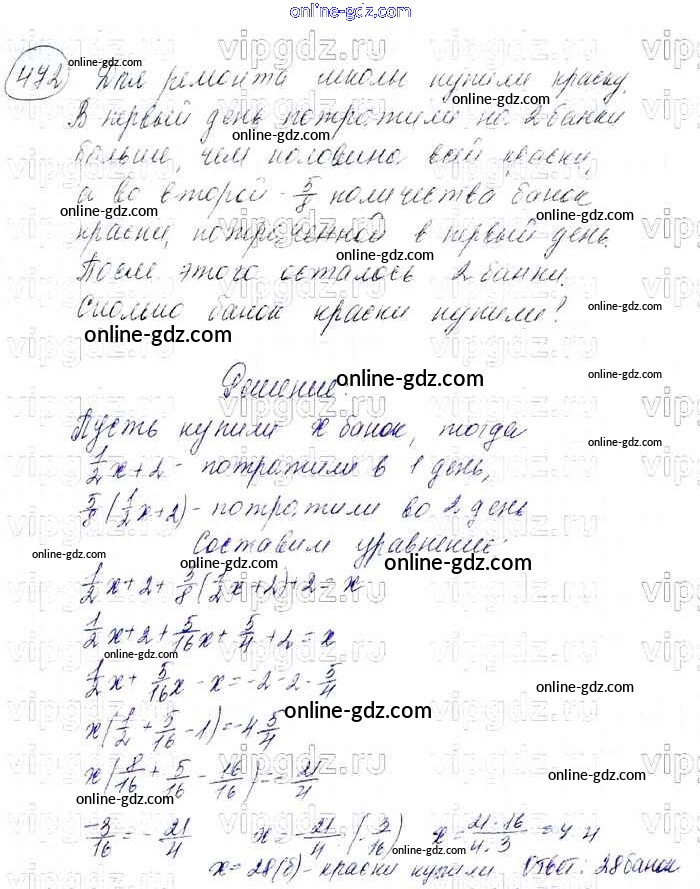 online-gdz.com
472 Для ремонта школы купили краску.
В первый день потратили на 2 банки
больше, чем половина всей краски,
а во второй - 5/8 количества банок
краски, потраченной в первый день.
После этого осталось 2 банки.
Сколько банок краски купили?
Решение:
Пусть купили x банок, тогда
1/2 x + 2 - потратили в 1 день,
5/8 (1/2 x + 2) - потратили во 2 день
Составим уравнение:
1/2 x + 2 + 5/8 (1/2 x + 2) + 2 = x
1/2 x + 2 + 5/16 x + 5/4 + 2 = x
1/2 x + 5/16 x - x = -2 - 2 - 5/4
x (1/2 + 5/16 - 1) = -4 5/4
x (8/16 + 5/16 - 16/16) = - 21/4
-3/16 = - 21/4 x = -21/4 : (- 3/16) x = 21·16/4·3 = 7·4
x = 28 (б) - краски купили Ответ: 28 банок